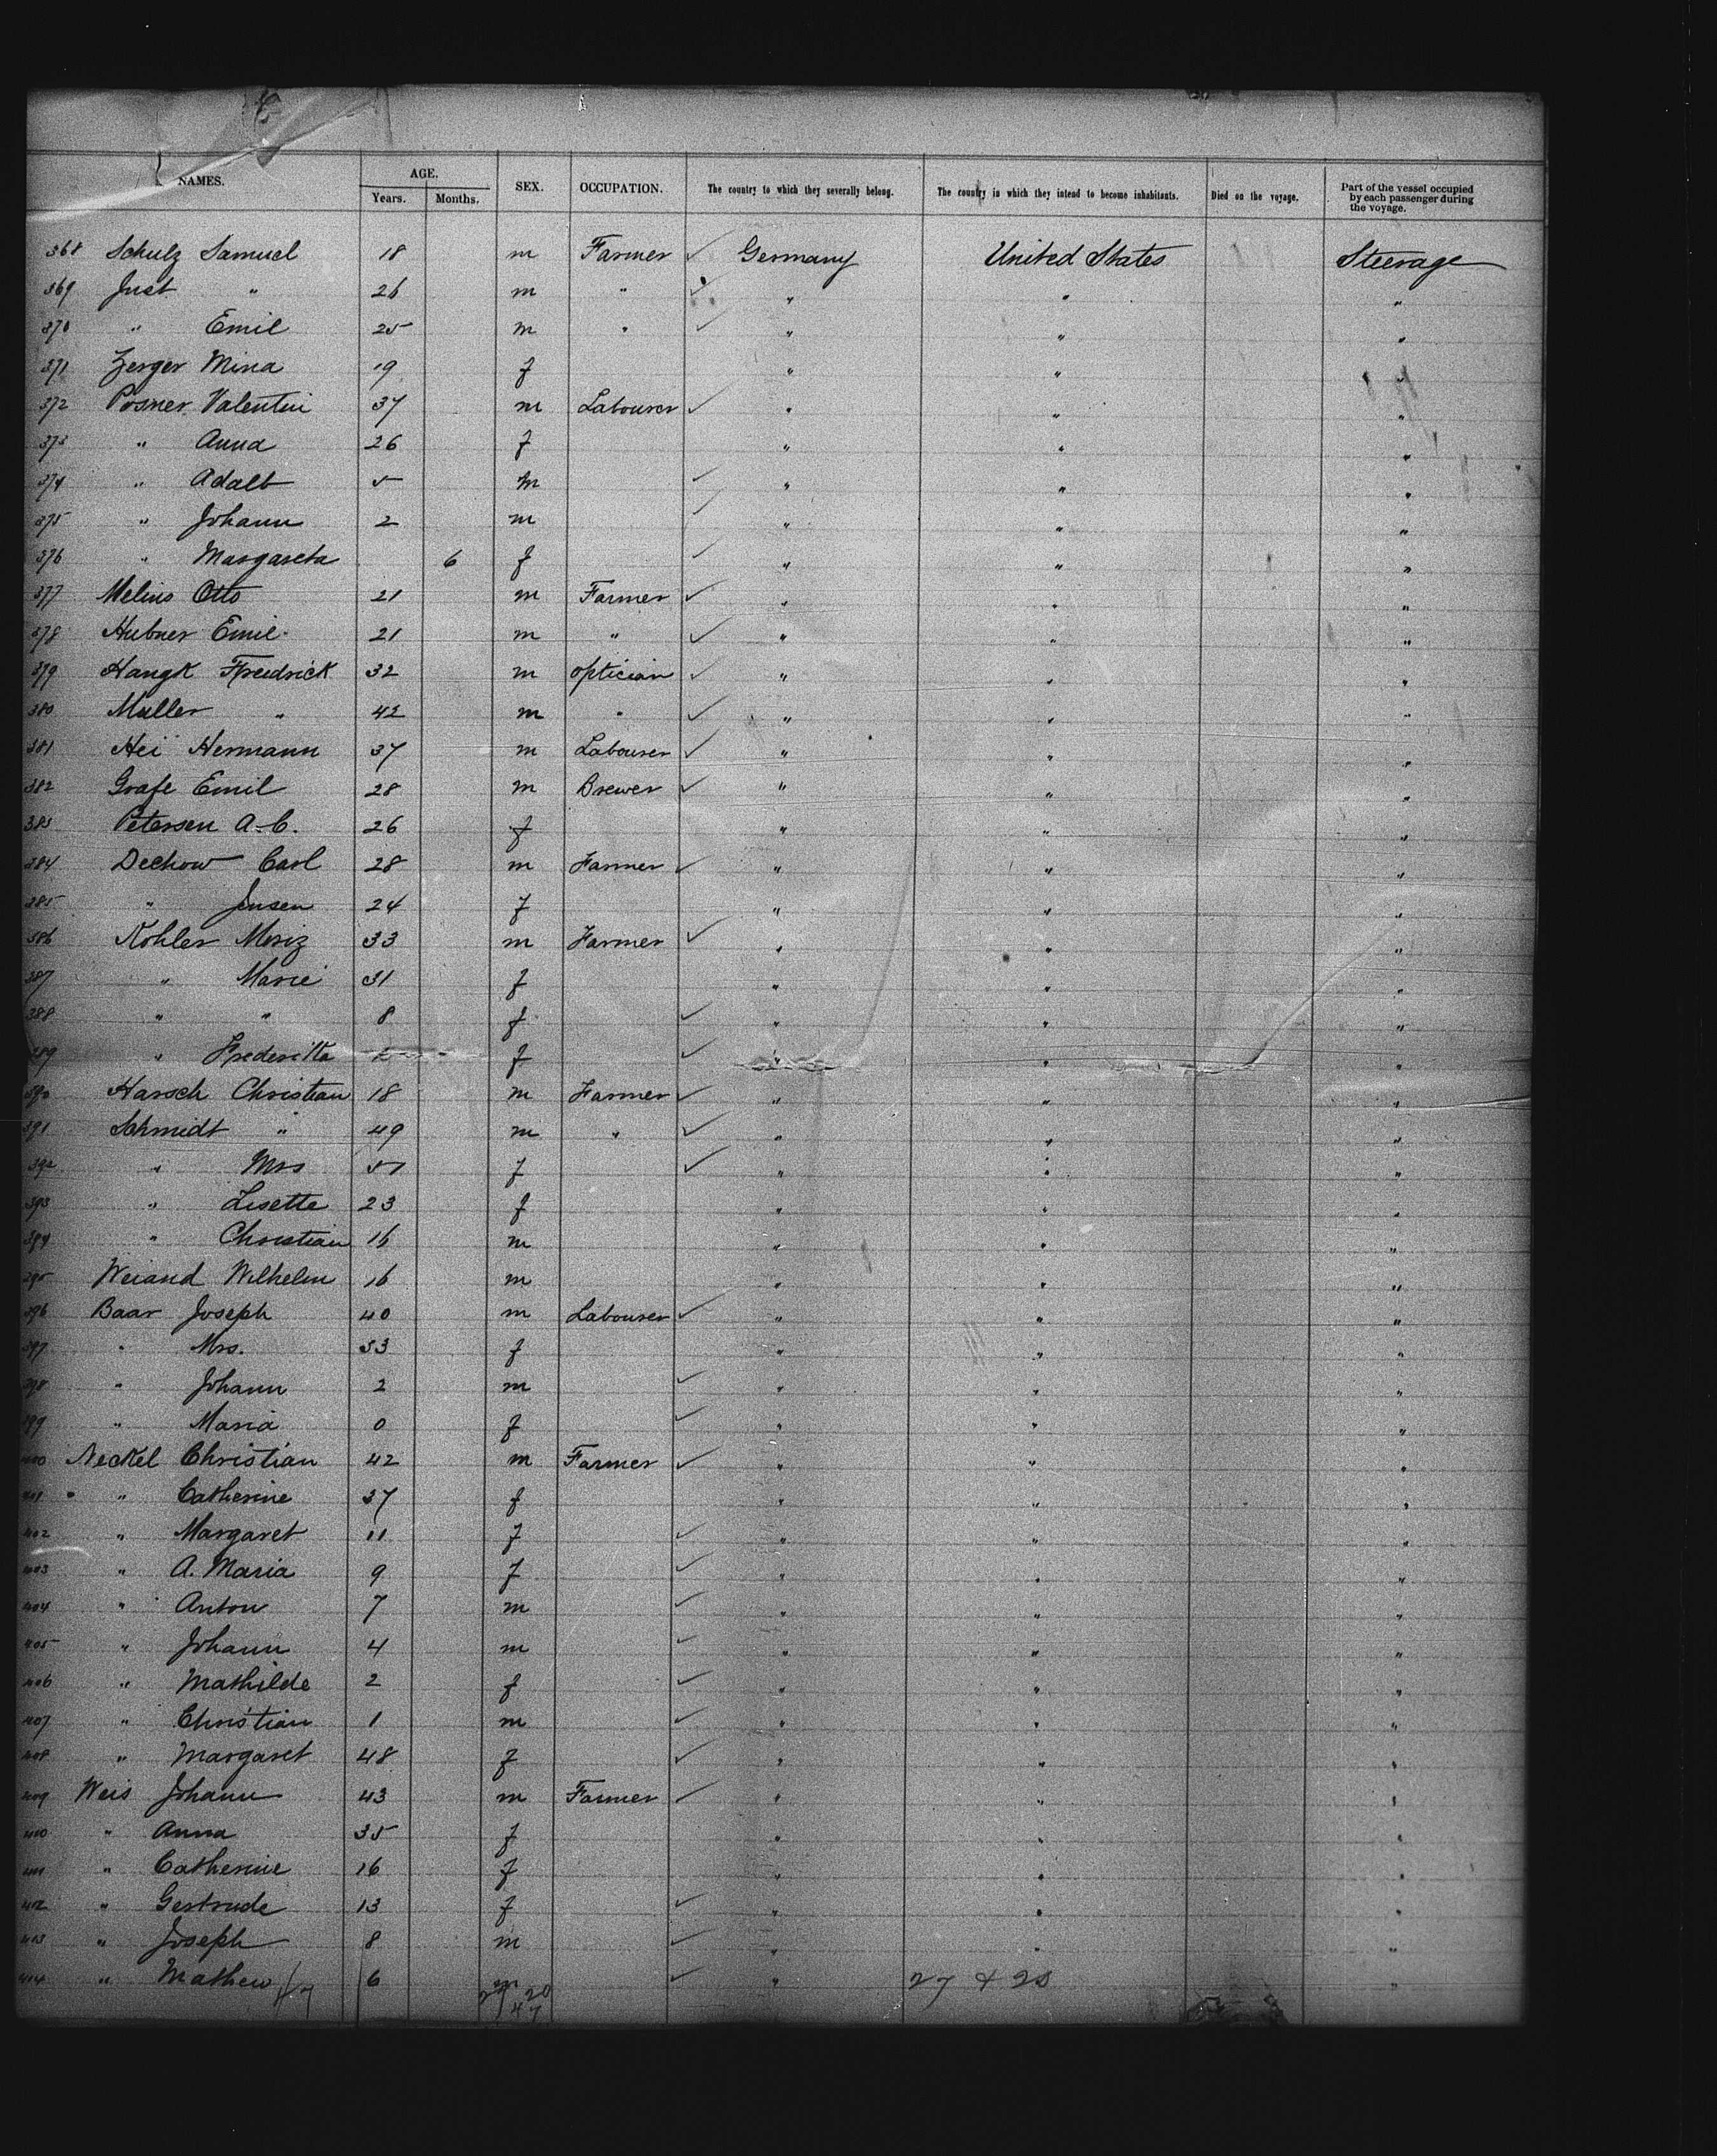 NAMES. AGE. Years. Months. SEX. OCCUPATION. The country to which they severally belong. The country in which they intend to become inhabitants. Died on the voyage. Part of the vessel occupied by each passenger during the voyage.
368 Schulz Samuel 18 m Farmer ✓ Germany United States Steerage
369 Just " 26 m " ✓ " " "
370 " Emil 25 m " ✓ " " "
371 Zerger Mina 19 f " " "
372 Posner Valentin 37 m Labourer ✓ " " "
373 " Anna 26 f " " "
374 " Adalb 5 m ✓ " " "
375 " Johann 2 m ✓ " " "
376 " Margareta 6 f ✓ " " "
377 Melius Otto 21 m Farmer ✓ " " "
378 Hubner Emil 21 m " ✓ " " "
379 Hangk Freedrick 32 m optician ✓ " " "
380 Muller " 42 m " ✓ " " "
381 Hei Hermann 37 m Labourer ✓ " " "
382 Grafe Emil 28 m Brewer ✓ " " "
383 Petersen A-C. 26 f " " "
384 Dechow Carl 28 m Farmer ✓ " " "
385 " Jensen 24 f " " "
386 Kohler Moriz 33 m Farmer ✓ " " "
387 " Marie 31 f " " "
388 " " 8 f ✓ " " "
389 " Frederikka f ✓ " " "
390 Harsch Christian 18 m Farmer ✓ " " "
391 Schmidt " 49 m " ✓ " " "
392 " Mrs f ✓ " " "
393 " Lisette 23 f " " "
394 " Christian 16 m " " "
395 Weiand Wilhelm 16 m " " "
396 Baar Joseph 40 m Labourer ✓ " " "
397 " Mrs. 33 f " " "
398 " Johann 2 m ✓ " " "
399 " Maria 0 f ✓ " " "
400 Neckel Christian 42 m Farmer ✓ " " "
401 " Catherine 37 f " " "
402 " Margaret 11 f ✓ " " "
403 " A. Maria 9 f ✓ " " "
404 " Anton 7 m ✓ " " "
405 " Johann 4 m ✓ " " "
406 " Mathilde 2 f ✓ " " "
407 " Christian 1 m ✓ " " "
408 " Margaret 48 f ✓ " " "
409 Weis Johann 43 m Farmer ✓ " " "
410 " Anna 35 f " " "
411 " Catherine 16 f " " "
412 " Gertrude 13 f ✓ " " "
413 " Joseph 8 m ✓ " " "
414 " Mathew 6 m ✓ " 27 + 20 "
27 20
47